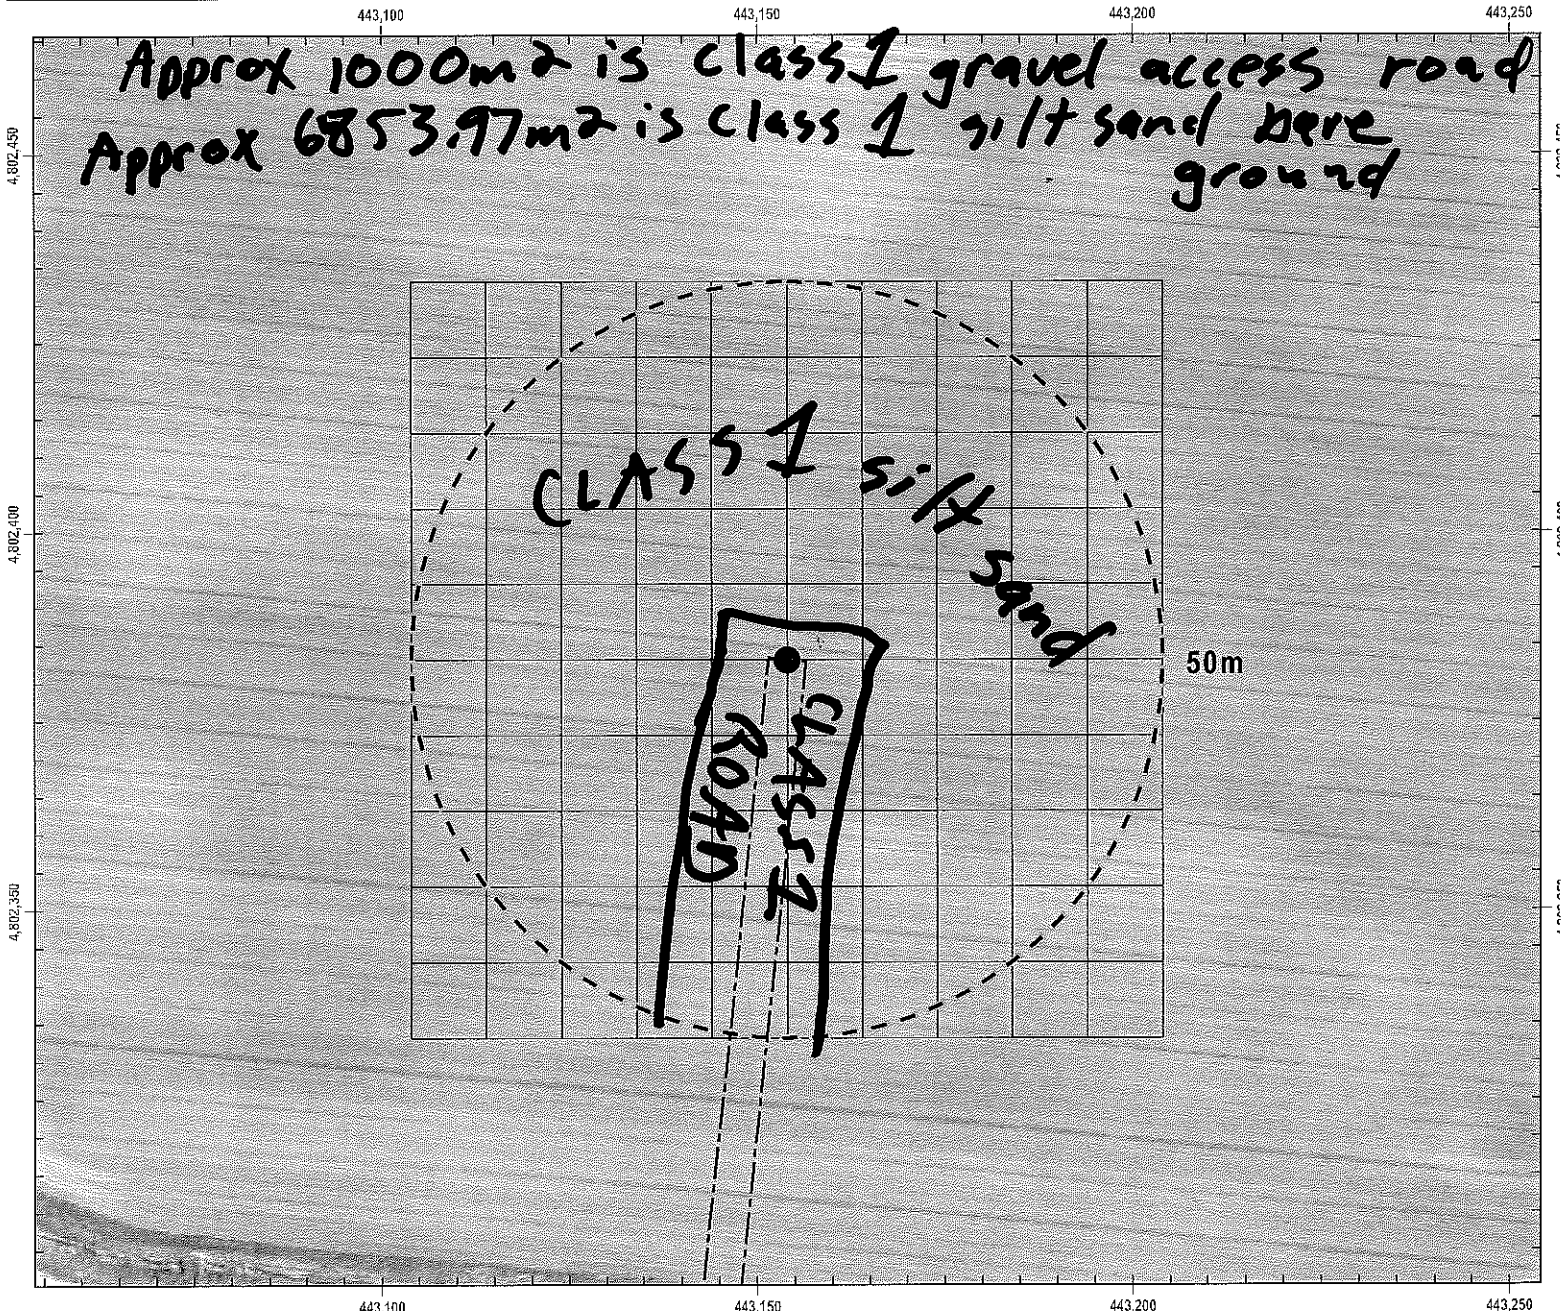 443,100 443,150 443,200 443,250
Approx 1000m2 is class 1 gravel access road
Approx 6853.97m2 is class 1 silt sand bare
ground
4,802,450
CLASS 1 silt sand
4,802,400
50m
CLASS 1
ROAD
4,802,350
443,100 443,150 443,200 443,250